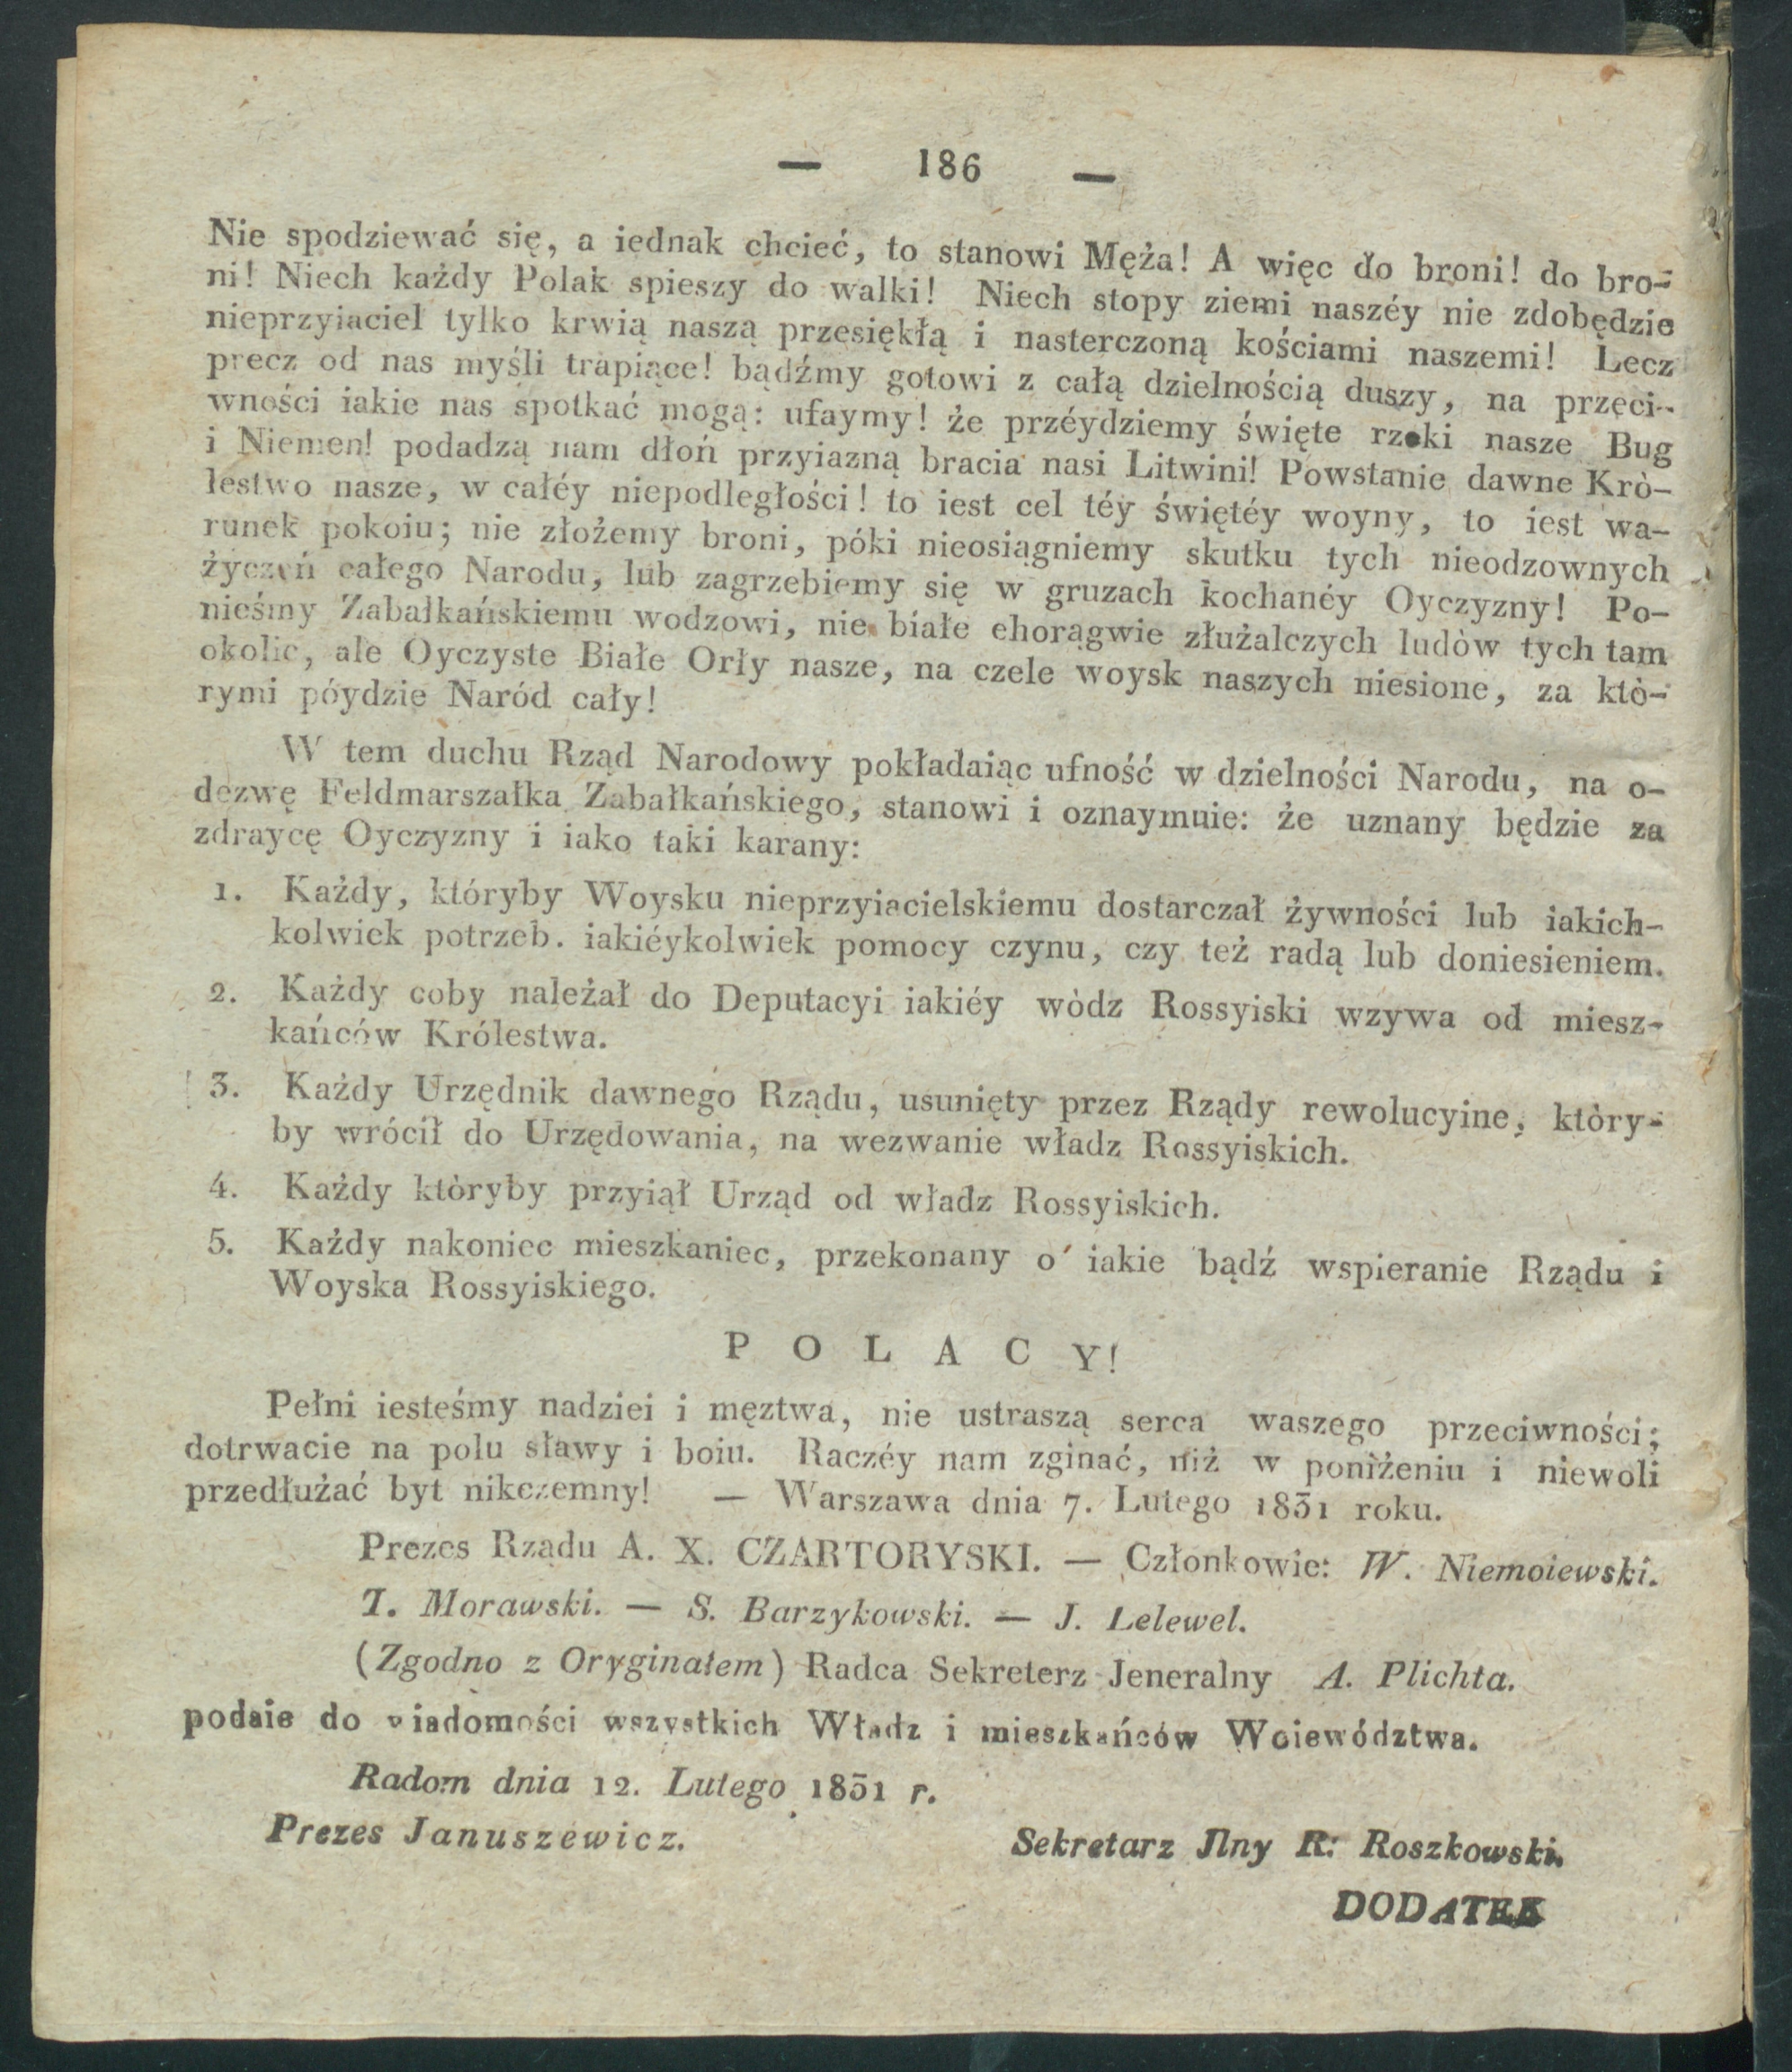 — 186 —
Nie spodziewać się, a iednak chcieć, to stanowi Męża! A więc do broni! do bro-
ni! Niech każdy Polak spieszy do walki! Niech stopy ziemi naszéy nie zdobędzie
nieprzyiaciel tylko krwią naszą przesiękłą i nasterczoną kościami naszemi! Lecz
precz od nas myśli trapiące! bądźmy gotowi z całą dzielnością duszy, na przeci-
wności iakie nas spotkać mogą: ufaymy! że przéydziemy święte rzeki nasze Bug
i Niemen! podadzą nam dłoń przyiazną bracia nasi Litwini! Powstanie dawne Krò-
lestwo nasze, w całéy niepodległości! to iest cel téy świętéy woyny, to iest wa-
runek pokoiu; nie złożemy broni, póki nieosiągniemy skutku tych nieodzownych
życzeń całego Narodu, lub zagrzebiemy się w gruzach kochanéy Oyczyzny! Po-
nieśmy Zabałkańskiemu wodzowi, nie białe chorągwie złużalczych ludòw tych tam
okolic, ale Oyczyste Białe Orły nasze, na czele woysk naszych niesione, za któ-
rymi póydzie Naród cały!
W tem duchu Rząd Narodowy pokładaiąc ufność w dzielności Narodu, na o-
dezwę Feldmarszałka Zabałkańskiego, stanowi i oznaymuie: że uznany będzie za
zdraycę Oyczyzny i iako taki karany:
1. Każdy, któryby Woysku nieprzyiacielskiemu dostarczał żywności lub iakich-
kolwiek potrzeb. iakiéykolwiek pomocy czynu, czy też radą lub doniesieniem.
2. Każdy coby należał do Deputacyi iakiéy wòdz Rossyiski wzywa od miesz-
kańców Królestwa.
3. Każdy Urzędnik dawnego Rządu, usunięty przez Rządy rewolucyine, który-
by wrócił do Urzędowania, na wezwanie władz Rossyiskich.
4. Każdy któryby przyiął Urząd od władz Rossyiskich.
5. Każdy nakoniec mieszkaniec, przekonany o iakie bądź wspieranie Rządu i
Woyska Rossyiskiego.
P O L A C Y!
Pełni iesteśmy nadziei i męztwa, nie ustraszą serca waszego przeciwności;
dotrwacie na polu sławy i boiu. Raczéy nam zginać, niż w poniżeniu i niewoli
przedłużać byt nikczemny! — Warszawa dnia 7. Lutego 1831 roku.
Prezes Rządu A. X. CZARTORYSKI. — Członkowie: W. Niemoiewski.
T. Morawski. — S. Barzykowski. — J. Lelewel.
(Zgodno z Oryginałem) Radca Sekreterz Jeneralny A. Plichta.
podaie do wiadomości wszystkich Władz i mieszkańców Woiewództwa.
Radom dnia 12. Lutego 1831 r.
Prezes Januszewicz.
Sekretarz Jlny R: Roszkowski.
DODATEK